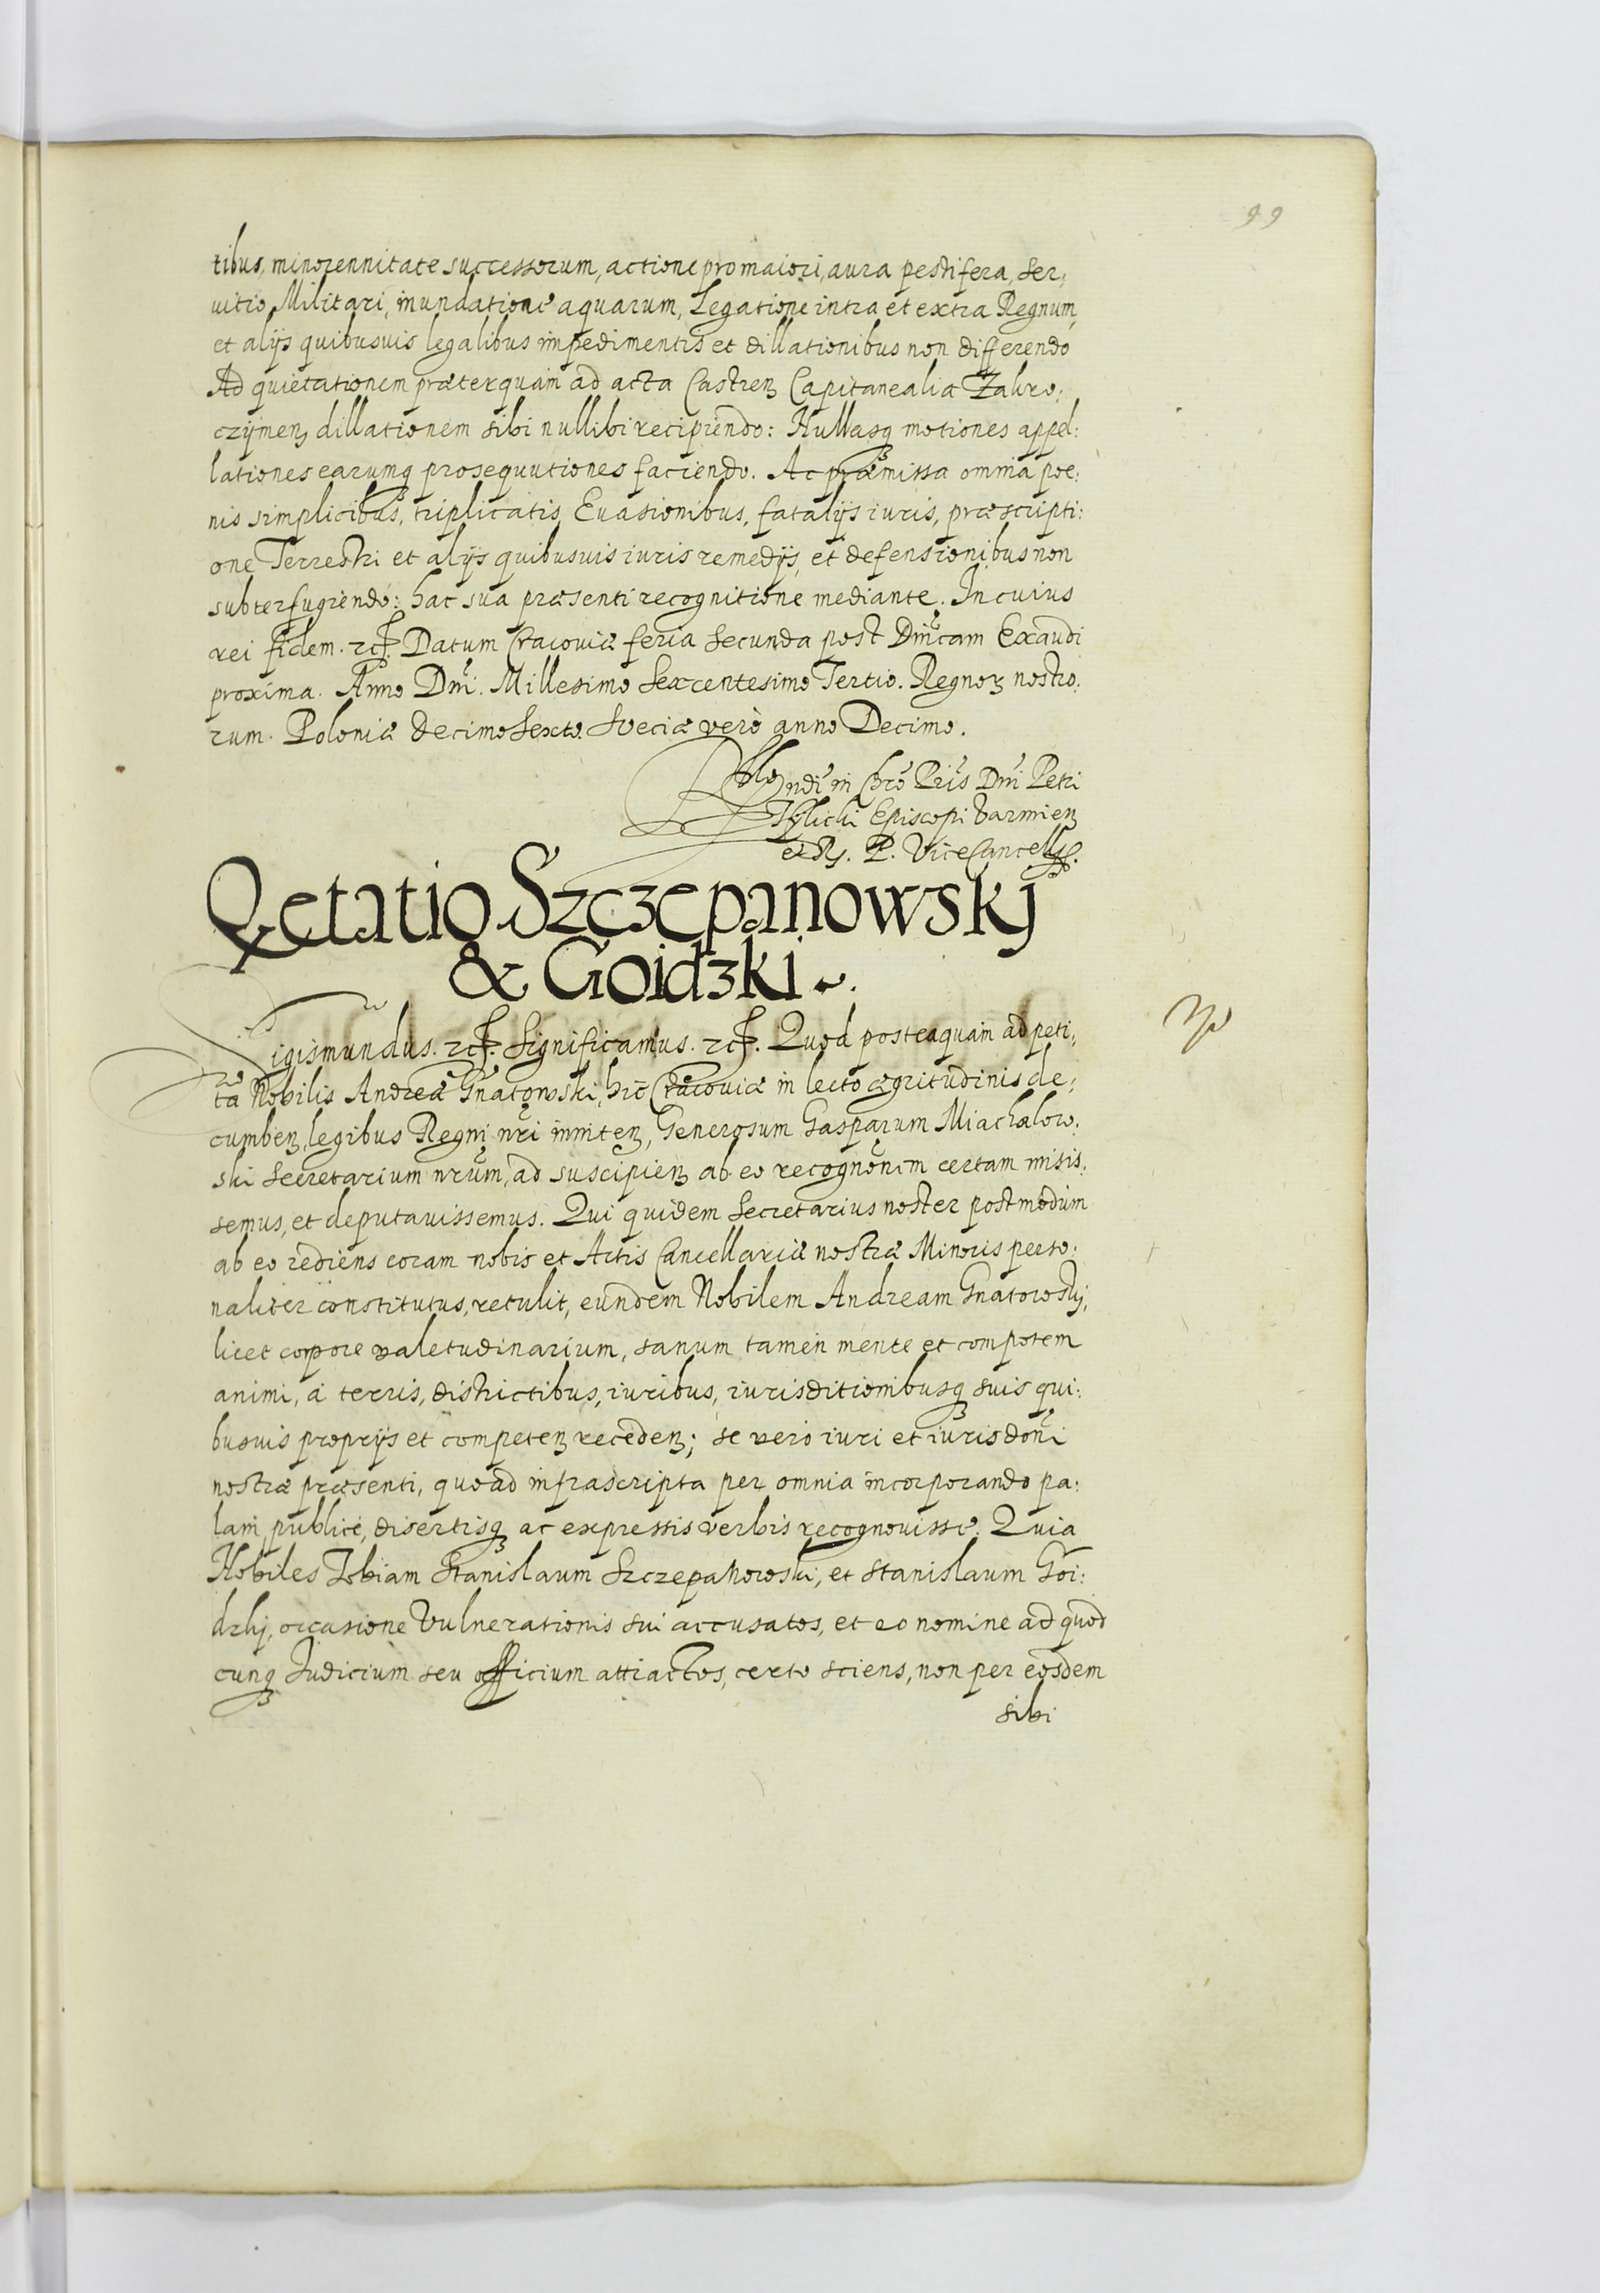 99
tibus, minorennitate successorum, actione pro maiori, aura pestifera, ser,
uitio Militari, inundatione aquarum, Legatione intra et extra Regnum,
et alijs quibusuis legalibus impedimentis et dillationibus non differendo
Ad quietationem præterquam ad acta Castreñ Capitanealia Zakro,
czymeñ dillationem sibi nullibi recipiendo: Nullasq motiones appel:
lationes earumq prosequutiones faciendo. Ac præmissa omnia poe:
nis simplicibus, triplicatis Euasionibus, fatalijs iuris, præscripti:
one Terrestri et alijs quibusuis iuris remedijs, et defensionibus non
subterfugiendo: hac sua præsenti recognitione mediante. In cuius
rei fidem. etc. Datum Cracouiæ feria secunda post Dnĩcam Exaudi
proxima. Anno Dnĩ. Millesimo Sexcentesimo Tertio. Regnoꝝ nostro,
rum. Poloniæ decimo sexto. Sueciæ verò anno Decimo.
Rndi in Chro Pris Dni Petri
Tylicki Episcopi Varmieñ
et Rs. P. ViceCancellrs.
Qetatio Szczepanowskj
& Goidzki.
Sigismundus. etc. Significamus. etc. Quod posteaquam ad peti,
ta Nobilis Andreæ Gnatowski, hic Cracouiæ in lecto ægritudinis de:
cumbeñ, legibus Regni nri inniteñ, Generosum Gasparum Miachalow:
ski Secretarium nrum, ad suscipieñ ab eo recognõnem certam misis,
semus, et deputauissemus. Qui quidem Secretarius noster postmodum
ab eo rediens coram nobis et Actis Cancellariæ nostræ Minoris perso:
naliter constitutus, retulit, eundem Nobilem Andream Gnatowskj,
licet corpore valetudinarium, sanum tamen mente et compotem
animi, à terris, districtibus, iuribus, iurisditionibusq suis qui:
busuis proprijs et competeñ recedeñ; se vero iuri et iurisdõni
nostræ præsenti, quoad infrascripta per omnia incorporando pa:
lam, publice, disertisq ac expressis verbis recognouisse. Quia
Nobiles Tobiam Stanislaum Szczepanowski, et Stanislaum Goi:
dzkj, occasione Vulnerationis sui accusatos, et eo nomine ad quod
cunq Iudicium seu officium attractos, certo sciens, non per eosdem
sibi